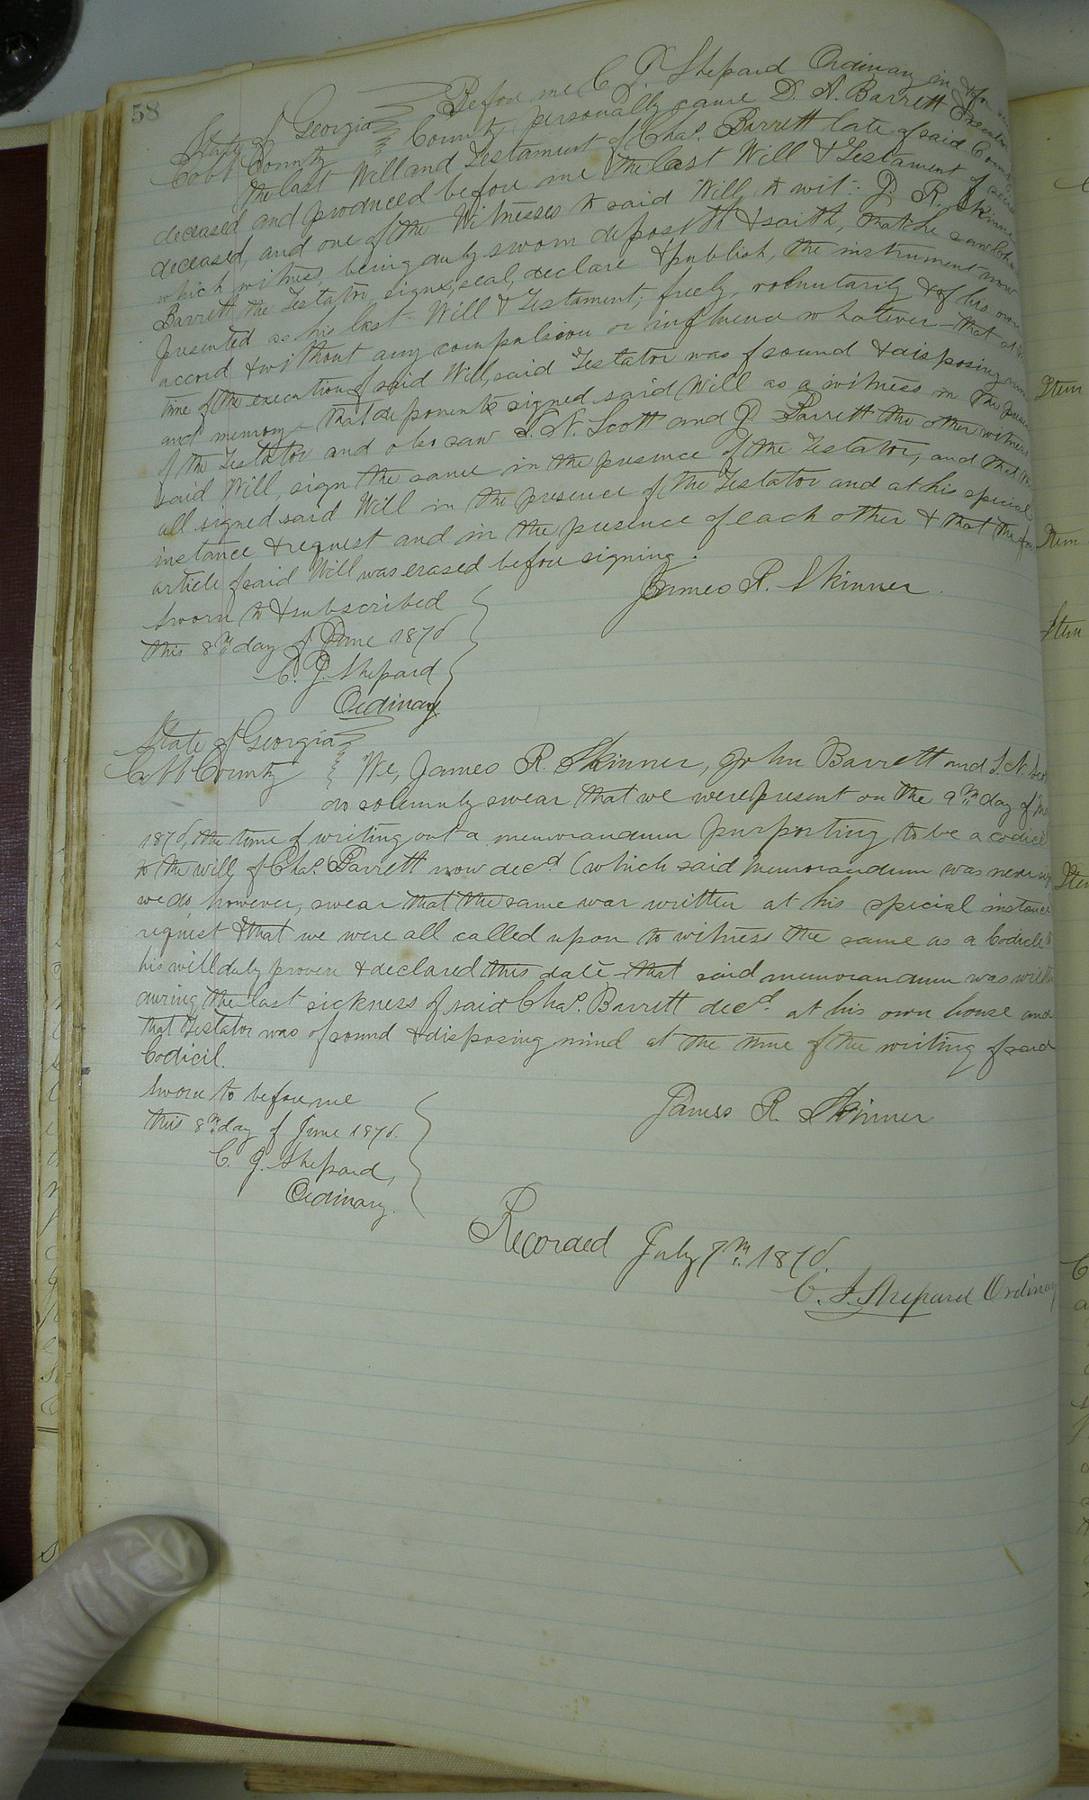 58
State of Georgia Before me C. J. Shepard Ordinary in & for
Cobb County County personally came D. A. Barrett Executor
the last Will and Testament of Chas. Barrett late of said County
deceased and produced before me the last Will & Testament of said
deceased, and one of the Witnesses to said Will, to wit: J. R. Skinner
which witness, being duly sworn deposeth & saith, that he saw Chas.
Barrett the Testator, signs, seal, declare & publish, the instrument now
presented as his last Will & Testament; freely, voluntarily & of his own
accord & without any compulsion or influence whatever that at the
time of the execution of said Will, said Testator was of sound & disposing mind
and memory that deponent signed said Will as a witness in the presence
of the Testator and also saw S. N. Scott and J. Barrett the other witnesses
said Will, sign the same in the presence of the Testator, and that
all signed said Will in the presence of the Testator and at his special
instance & request and in the presence of each other & that the
article of said Will was erased before signing.
Sworn to & subscribed James R. Skinner
this 8th day of June 1876
C. J. Shepard
Ordinary
State of Georgia
Cobb County We, James R. Skinner, John Barrett and S. N. Scott
do solemnly swear that we were present on the 9th day of
1876, the time of writing out a memorandum purporting to be a codicil
to the will of Chas. Barrett now decd (which said memorandum was never
we do, however, swear that the same was written at his special instance
request & that we were all called upon to witness the same as a Codicil
his will duly proven & declared this date that said memorandum was written
during the last sickness of said Chas. Barrett decd. at his own house and
that Testator was of sound & disposing mind at the time of the writing of said
Codicil.
Sworn to before me James R. Skinner
this 8th day of June 1876.
C. J. Shepard,
Ordinary.
Recorded July 7th 1876.
C. J. Shepard Ordinary
Item
Item
Item